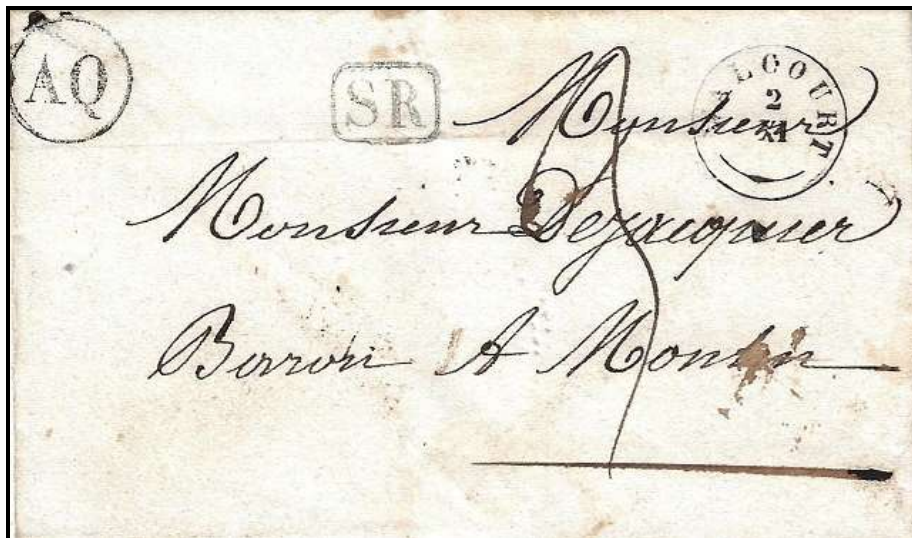 AQ
SR
ALCOURT
2
XI
Monsieur
Monsieur Dejacquier
Baron A Montin
3